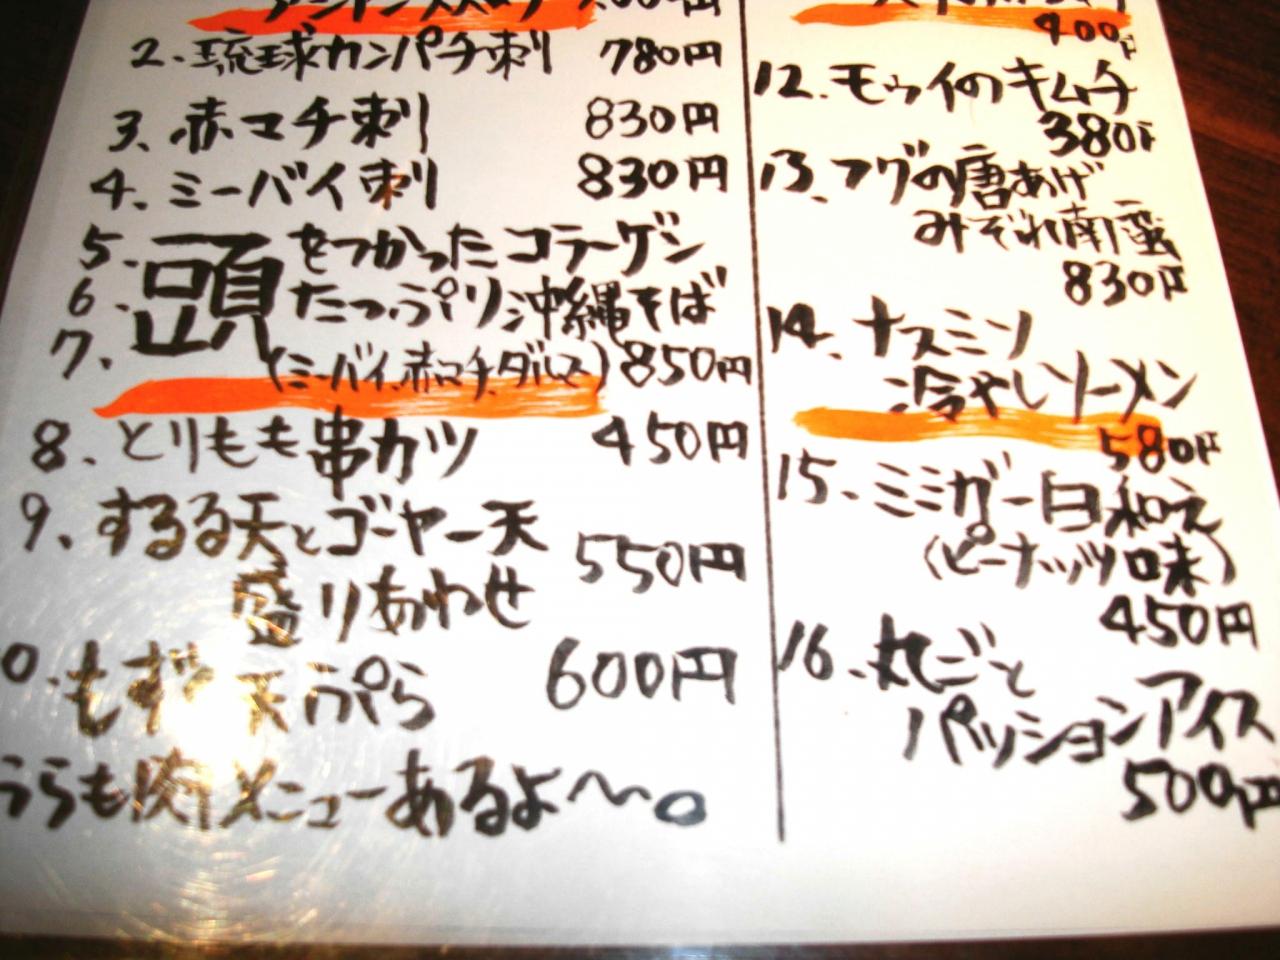 2. 琉球カンパチ刺 780円
3、赤マチ刺 830円
4、ミーバイ刺 830円
5. 頭をつかったコラーゲン
6. たっぷり沖縄そば
7、(ミーバイ、赤マチ、ダルマ) 850円
8、とりもも串カツ 450円
9、するる天とゴーヤー天
盛りあわせ 550円
0. もずく天ぷら 600円
うらも肉メニューあるよ〜。
400円
12、モウイのキムチ
380円
13、フグの唐あげ
みぞれ南蛮
830円
14、ナスミソ
冷やしソーメン
580円
15、ミミガー白和え
(ピーナッツ味)
450円
16、丸ごと
パッションアイス
500円